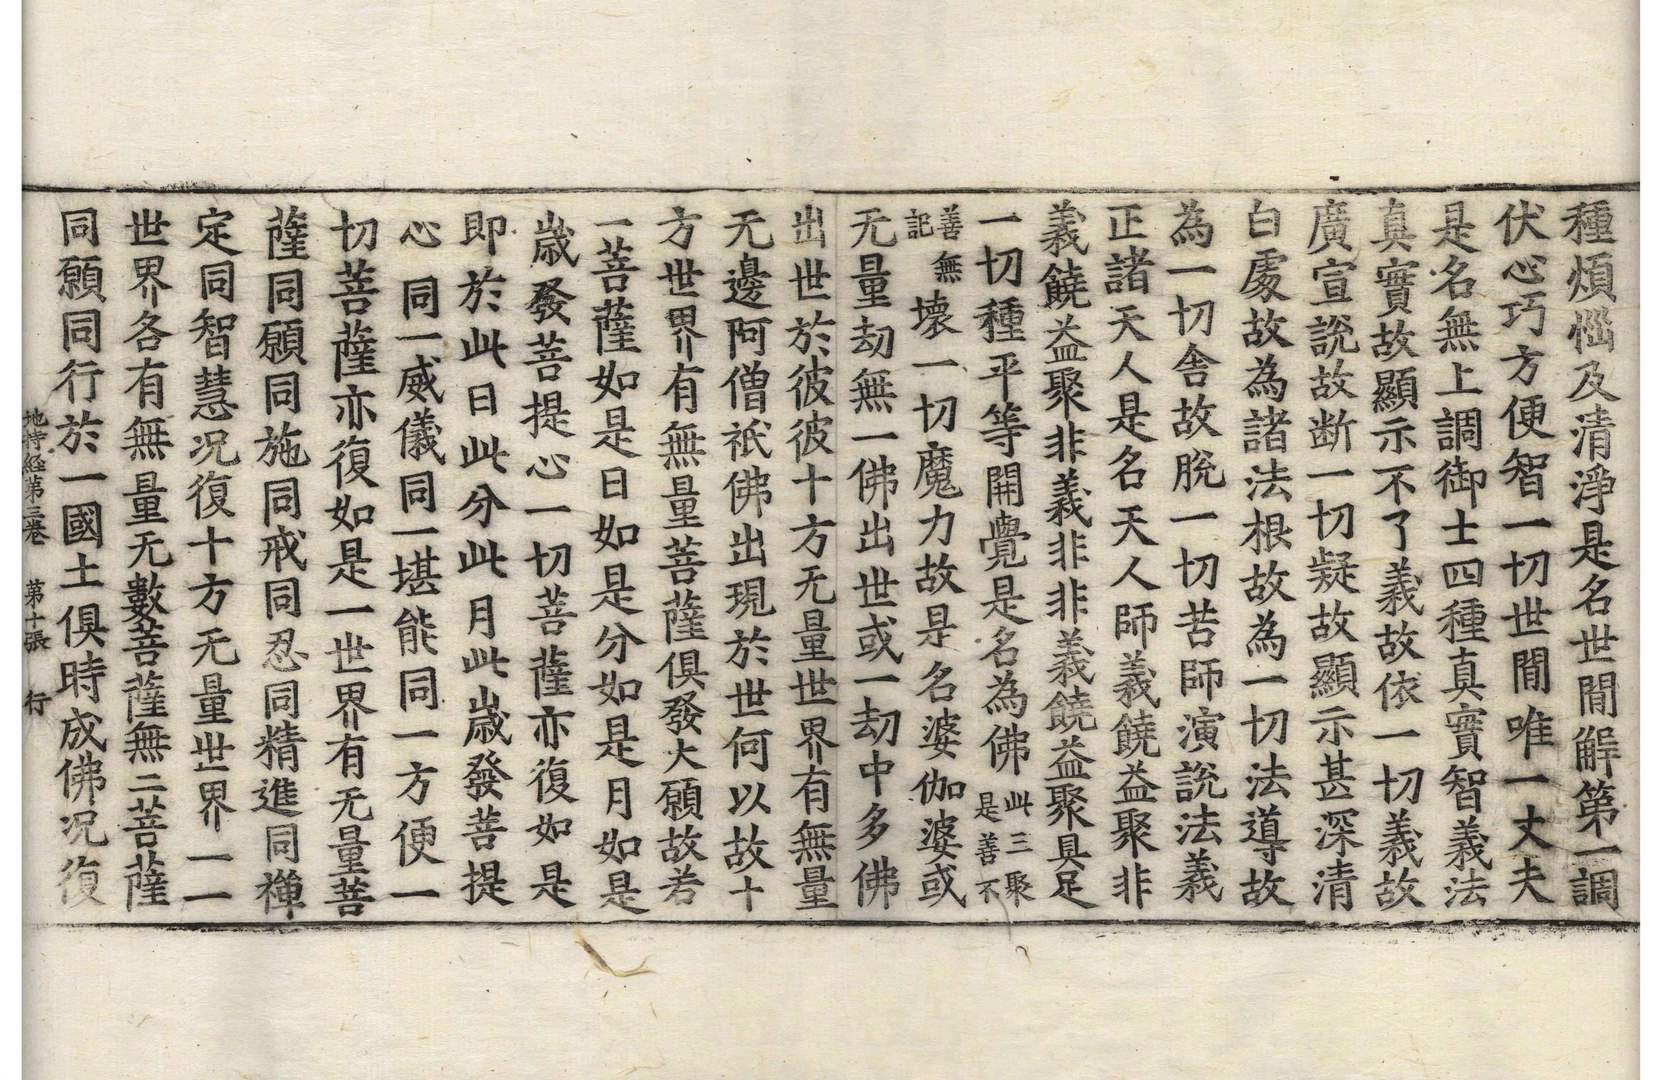 種煩惱及清淨是名世間解第一調
伏心巧方便智一切世間唯一丈夫
是名無上調御士四種真實智義法
真實故顯示不了義故依一切義故
廣宣說故断一切疑故顯示甚深清
白處故為諸法根故為一切法導故
為一切舍故脫一切苦師演說法義
正諸天人是名天人師義饒益聚非
義饒益聚非義非非義饒益聚具足
一切種平等開覺是名為佛此三聚是善不
善無記壞一切魔力故是名婆伽婆或
无量劫無一佛出世或一劫中多佛
出世於彼彼十方无量世界有無量
无邊阿僧祇佛出現於世何以故十
方世界有無量菩薩俱發大願故若
一菩薩如是日如是分如是月如是
歲發菩提心一切菩薩亦復如是
即於此日此分此月此歲發菩提
心同一威儀同一堪能同一方便一
切菩薩亦復如是一世界有无量菩
薩同願同施同戒同忍同精進同禪
定同智慧况復十方无量世界一一
世界各有無量无數菩薩無二菩薩
同願同行於一國土俱時成佛况復
地持経第三卷 第十張 行